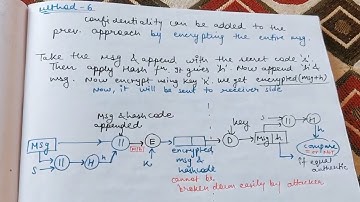 Method - 6
confidentiality can be added to the
prev. approach by encrypting the entire msg.
Take the msg & append with the secret code 's'.
Then apply Hash fn. It gives 'h'. Now append 'h' &
msg. Now encrypt using key 'k'. We get encrypted (msg+h)
Now, it will be sent to receiver side
Msg & hash code
appended
key
S → || → H
Msg → || → E → → D → Msg h
S → || → H h
K
encrypted
msg &
hashcode
compare
if equal
authentic
cannot be
broken down easily by attacker